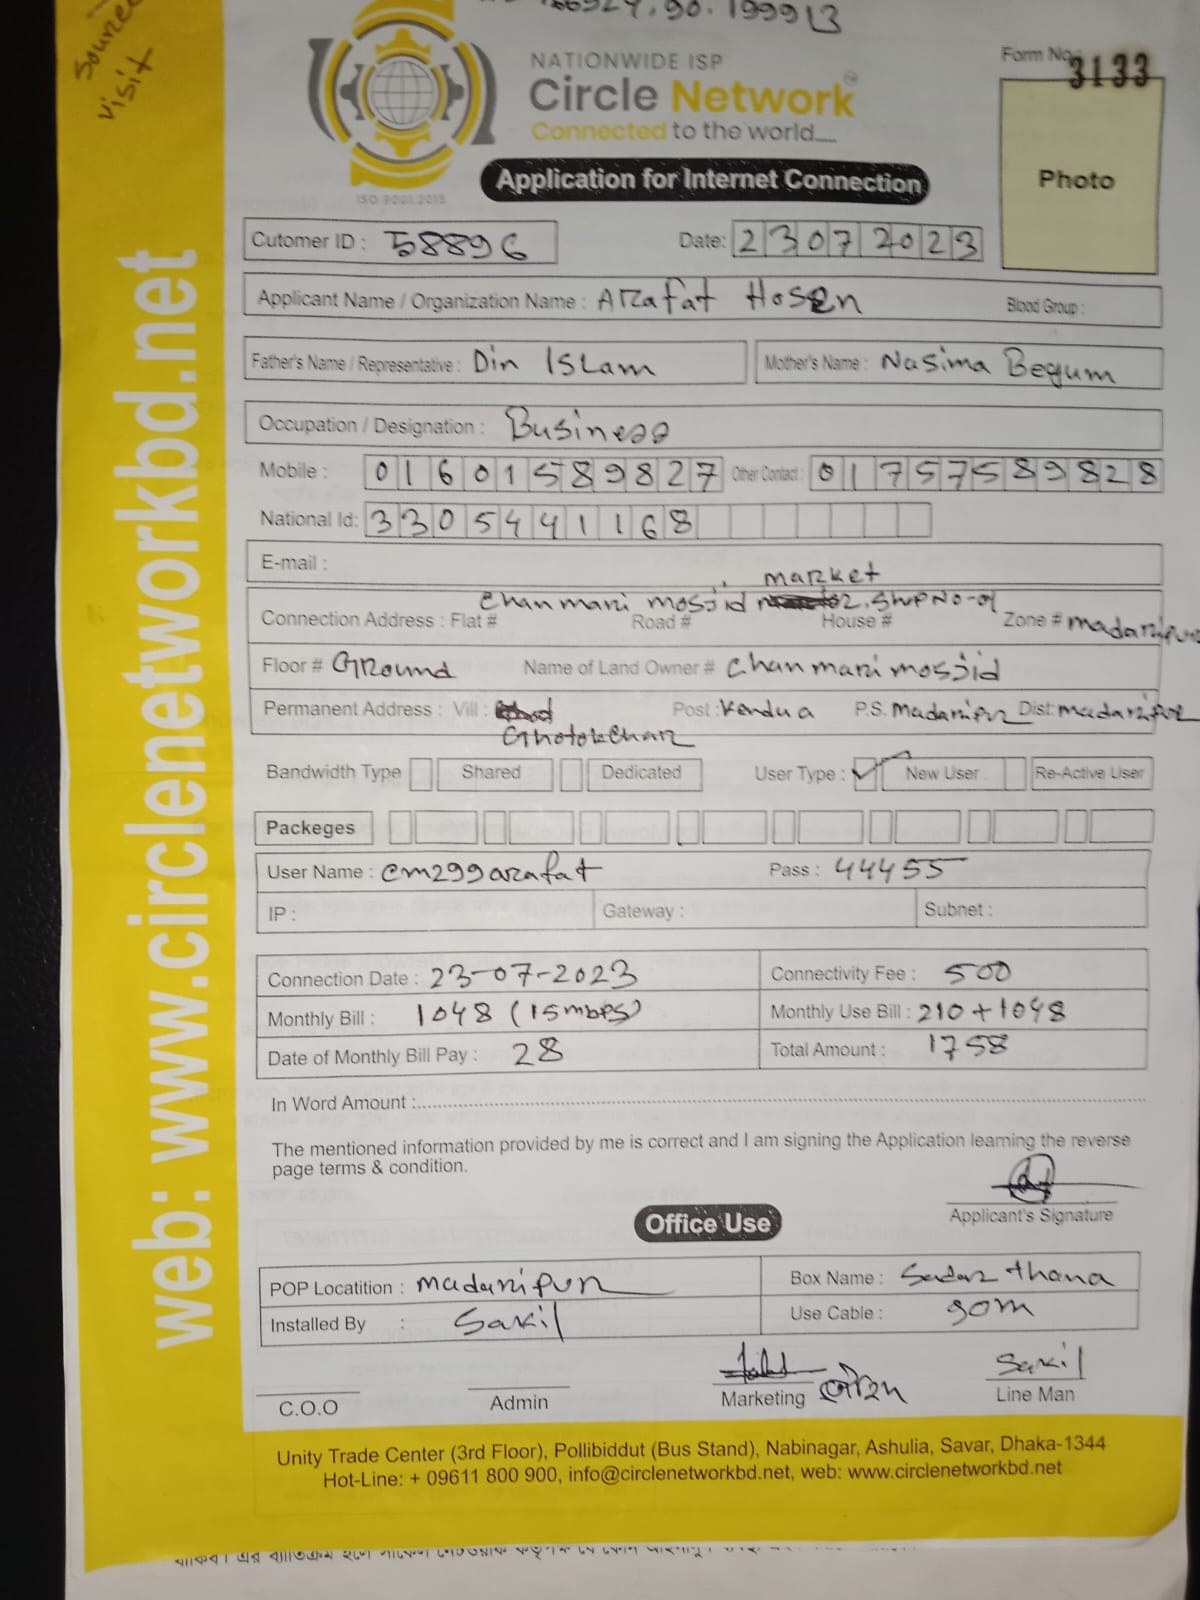 Source
visit
NATIONWIDE ISP
Circle Network
Connected to the world....
ISO 9001:2015
Form No. 3133
Photo
Application for Internet Connection
Cutomer ID : 58896 Date: 23072023
Applicant Name / Organization Name : Arafat Hosen Blood Group :
Father's Name / Representative : Din Islam Mother's Name : Nasima Begum
Occupation / Designation : Business
Mobile : 01601589827 Other Contact : 01757589828
National Id: 3305441168
E-mail :
market
Chanmari mosjid
Connection Address : Flat # Road # House # Zone # madaripur
Floor # Ground Name of Land Owner # Chanmari mosjid
Permanent Address : Vill : Post : Kendua P.S. Madaripur Dist: madaripur
Ghotokchar
Bandwidth Type Shared Dedicated User Type : ✓ New User Re-Active User
Packeges
User Name : cm299arafat Pass : 44455
IP : Gateway : Subnet :
Connection Date : 23-07-2023 Connectivity Fee : 500
Monthly Bill : 1048 (15mbps) Monthly Use Bill : 210 + 1048
Date of Monthly Bill Pay : 28 Total Amount : 1758
In Word Amount :
The mentioned information provided by me is correct and I am signing the Application learning the reverse
page terms & condition.
Applicant's Signature
Office Use
POP Locatition : madaripur Box Name : Sadar thana
Installed By : Sakil Use Cable : 90m
Sakil
C.O.O Admin Marketing Line Man
Unity Trade Center (3rd Floor), Pollibiddut (Bus Stand), Nabinagar, Ashulia, Savar, Dhaka-1344
Hot-Line: + 09611 800 900, info@circlenetworkbd.net, web: www.circlenetworkbd.net
web: www.circlenetworkbd.net